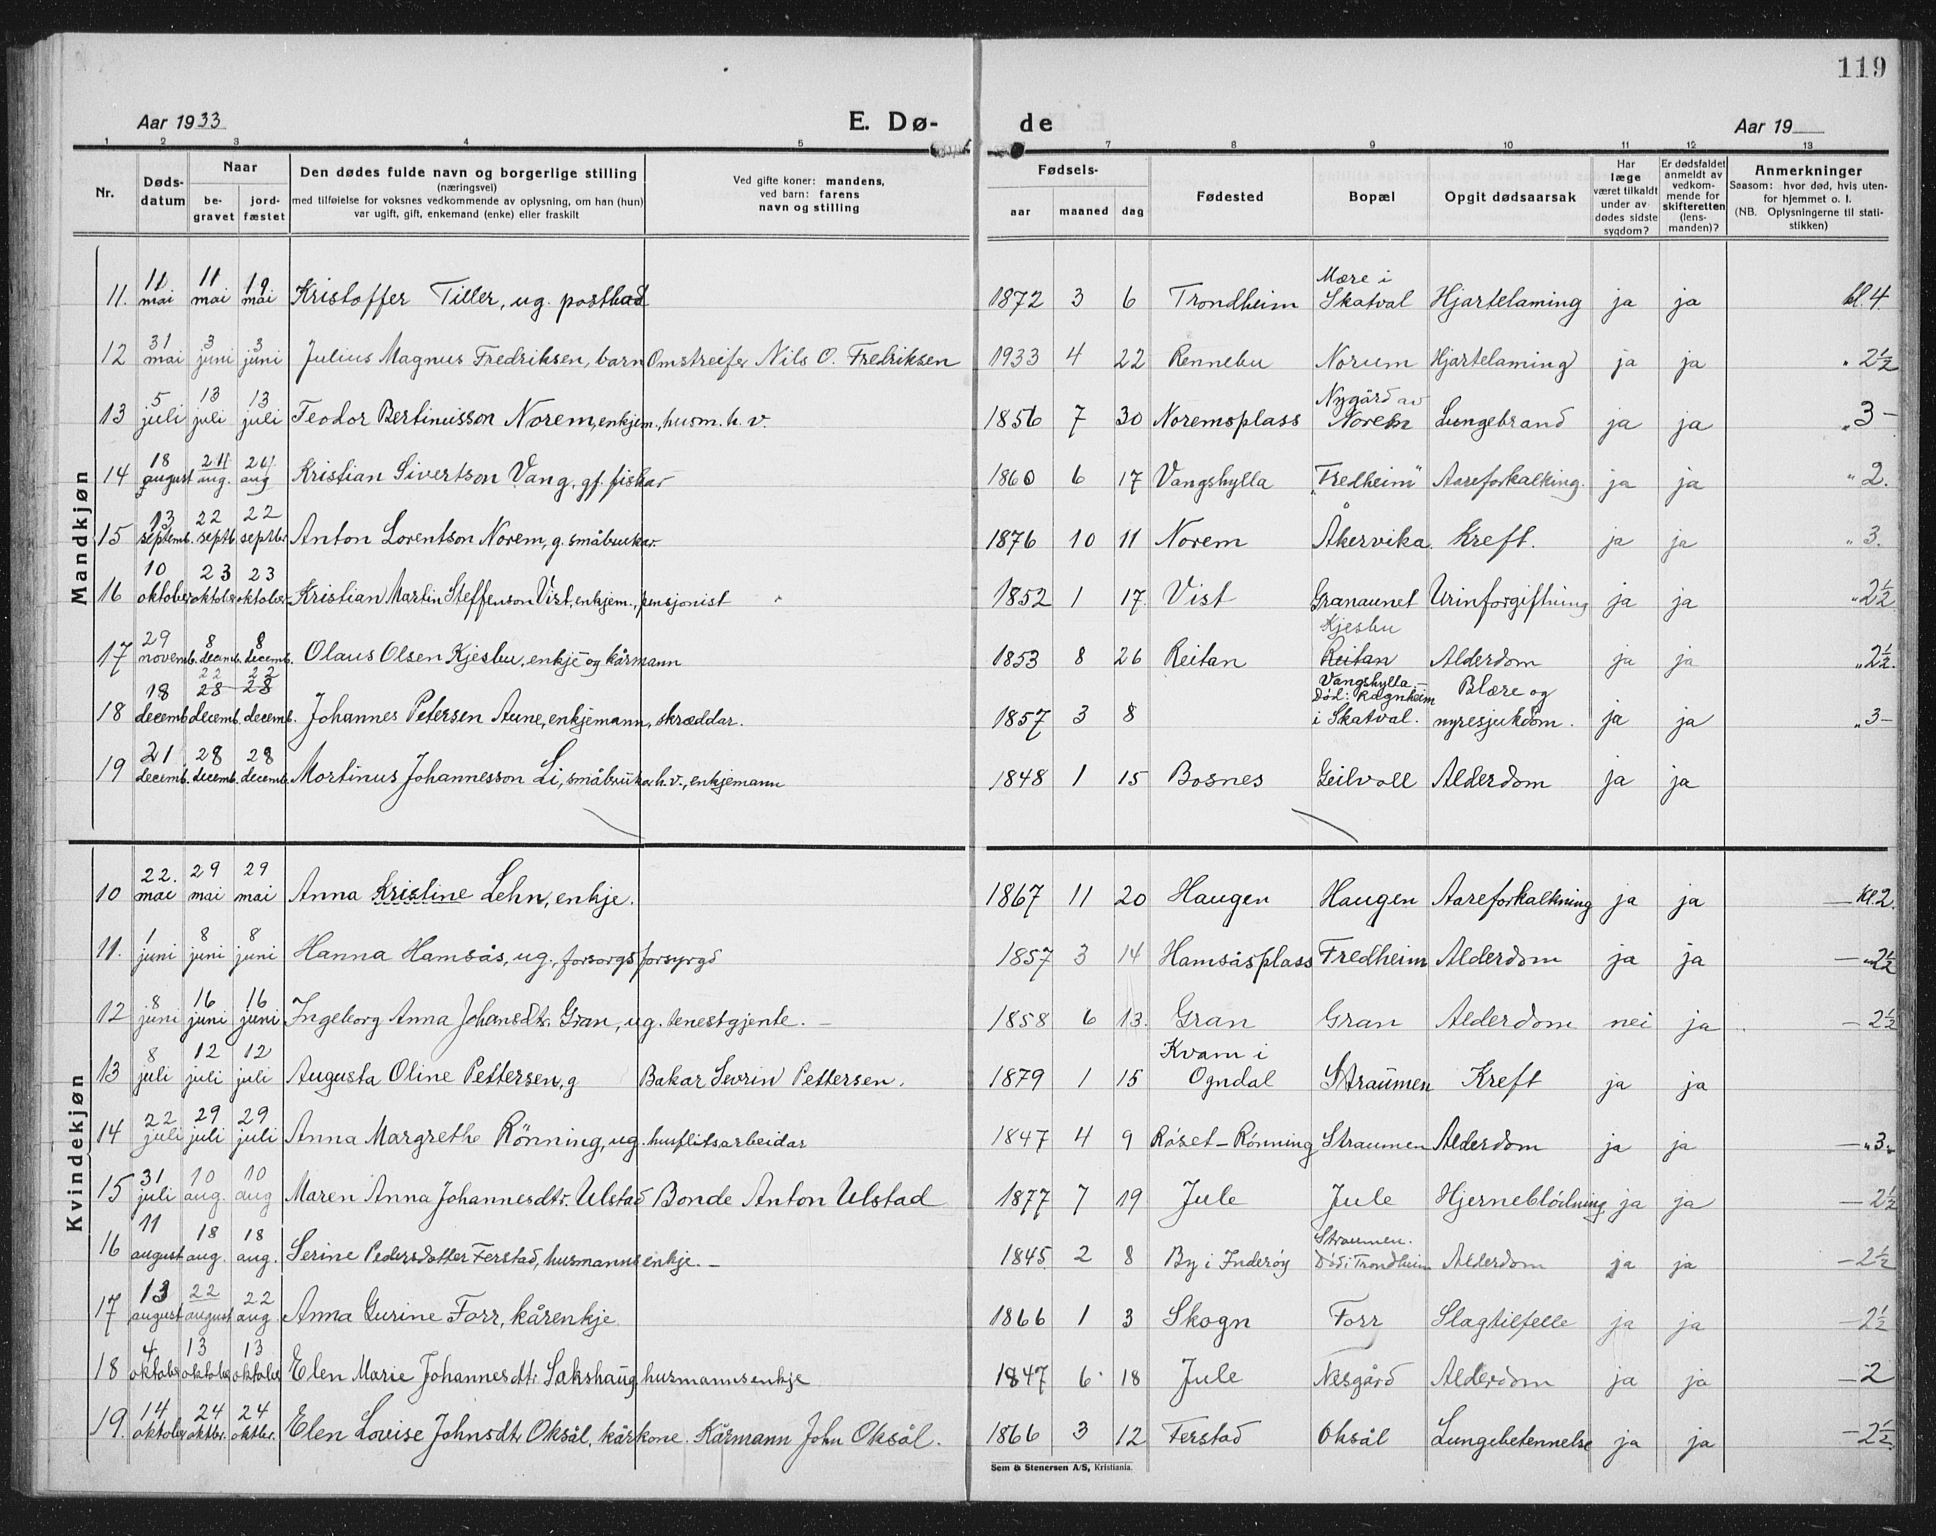 119
Aar 1933 E. Dø- de Aar 19
1 2 3 4 5 7 8 9 10 11 12 13
Nr. Døds-datum Naar be-gravet jord-fæstet Den dødes fulde navn og borgerlige stilling (næringsvei) med tilføielse for voksnes vedkommende av oplysning, om han (hun) var ugift, gift, enkemand (enke) eller fraskilt Ved gifte koner: mandens, ved barn: farens navn og stilling Fødsels- aar maaned dag Fødested Bopæl Opgit dødsaarsak Har læge været tilkaldt under av-dødes sidste sygdom? Er dødsfaldet anmeldt av vedkom-mende for skifteretten (lens-manden)? Anmerkninger Saasom: hvor død, hvis uten-for hjemmet o. l. (NB. Oplysningerne til stati-stikken)
Mandkjøn
11. 11 mai 11 mai 19 mai Kristoffer Tiller, ug. postbud 1872 3 6 Trondheim Mære i Skatval Hjartelaming ja ja kl. 4.
12 31 mai 3 juni 3 juni Julius Magnus Fredriksen, barn Omstreifer Nils O. Fredriksen 1933 4 22 Rennebu Norum Hjartelaming ja ja " 2½
13 5 juli 13 juli 13 juli Teodor Bertinusson Norem, enkjem., husm. h. v. 1856 7 30 Noremsplass Nygård av Norem Lungebrand ja ja " 3 -
14 18 august 24 aug. 24 aug Kristian Sivertson Vang, gf. fiskar 1860 6 17 Vangshylla "Fredheim" Aareforkalking. ja ja " 2.
15 13 septemb. 22 septb. 22 septbr. Anton Lorentson Norem, g. småbrukar. 1876 10 11 Norem Åkervika. Kreft. ja ja " 3.
16 10 oktober 23 oktober 23 oktober Kristian Martin Steffenson Vist, enkjem., pensjonist " 1852 1 17. Vist Granaunet Urinforgiftning ja ja " 2½
17 29 novemb. 8 decemb. 8 decemb. Olaus Olsen Kjesbu, enkje- og kårmann 1853 8 26 Reitan Kjesbu Reitan Alderdom ja ja " 2½.
18 18 decemb. 22 28 decemb. 22 28 decemb. Johannes Petersen Aune, enkjemann, skræddar. 1857 3 8 Vangshylla - Død: Ragnheim i Skatval. Blære og nyresjukdom. ja ja " 3 -
19 21 decemb. 28 decemb. 28 decemb. Mortinus Johannesson Li, småbrukar h. v., enkjemann 1848 1 15 Bosnes Geilvoll Alderdom ja ja
Kvindekjøn
10 22. mai 29 mai 29 mai Anna Kristine Lehn, enkje. 1867 11 20 Haugen Haugen Aareforkalkning ja ja — Kl. 2.
11. 1 juni 8 juni 8 juni Hanna Hamsås, ug., forsorgsforsyrgd 1857 3 14 Hamsåsplass Fredheim Alderdom ja ja — 2½
12 8 juni 16 juni 16 juni Ingeborg Anna Johansdtr. Gran, ug. tenestgjente. — 1858 6 13. Gran Gran Alderdom nei ja — 2½
13 8 juli 12 juli 12 juli Augusta Oline Pettersen, g Bakar Sevrin Pettersen. 1879 1 15 Kvam i Ogndal Straumen Kreft ja ja
14 22 juli 29 juli 29 juli Anna Margrethe Rönning, ug. husflitsarbeidar 1847 4 9 Røset - Rønning Straumen Alderdom ja ja — " 3 "
15 31 juli 10 aug. 10 aug Maren Anna Johannesdtr. Ulstad Bonde Anton Ulstad 1877 7 19 Jule Jule Hjerneblödning ja ja — 2½
16 11 august 18 aug. 18 aug. Serine Pedersdatter Ferstad, husmannsenkje. — 1845 2 8 By i Inderøy Straumen. Död i Trondheim Alderdom ja ja — 2½
17 13 august 22 august 22 aug. Anna Gurine Forr, kårenkje. 1866 1 3 Skogn Forr Slagtilfelle ja ja — 2½
18 4 oktober 13 oktober 13 oktober Elen Marie Johannesdtr Sakshaug husmannsenkje 1847 6 18 Jule Nesgård Alderdom ja ja — 2
19. 14 oktober 24 oktbr. 24 oktbr. Elen Lovise Johnsdtr Oksål, kårkone. Kårmann John Oksål. 1866 3 12 Ferstad Oksål Lungebetennelse ja ja — 2½.
Sem & Stenersen A/S, Kristiania.